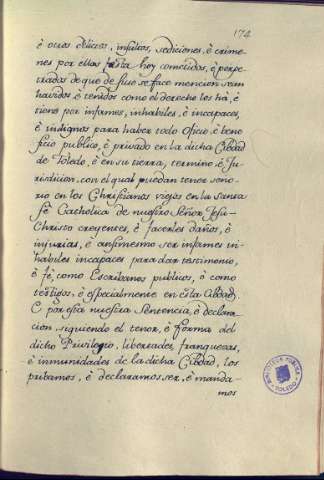 174
è otros delictos, insultos, sediciones, è crime-
nes por ellos hasta hoy cometidos, è perpe-
trados de que de suso se face mencion sean
havidos è tenidos como el derecho los há, è
tiene por infames, inhabiles, è incapaces,
è indignos para haber todo oficio, è bene
ficio publico, è privado en la dicha Cibdad
de Toledo, è en su tierra, termino è Ju-
risdicion, con el qual puedan tener seño-
rio en los Christianos viejos en la Santa
Fè Catholica de nuestro Señor Jesu-
Christo creyentes, è facerles daños, è
injurias, è ansimesmo ser infames in-
habiles incapaces para dar testimonio,
è fè, como Escribanos publicos, ò como
testigos, è especialmente en esta Cibdad;
E por esta nuestra Sentencia, è declara-
cion siguiendo el tenor, è forma del
dicho Privilegio, libertades, franquezas,
è inmunidades de la dicha Cibdad, los
pribamos, è declaramos ser, è manda-
mos
BIBLIOTECA PUBLICA
TOLEDO